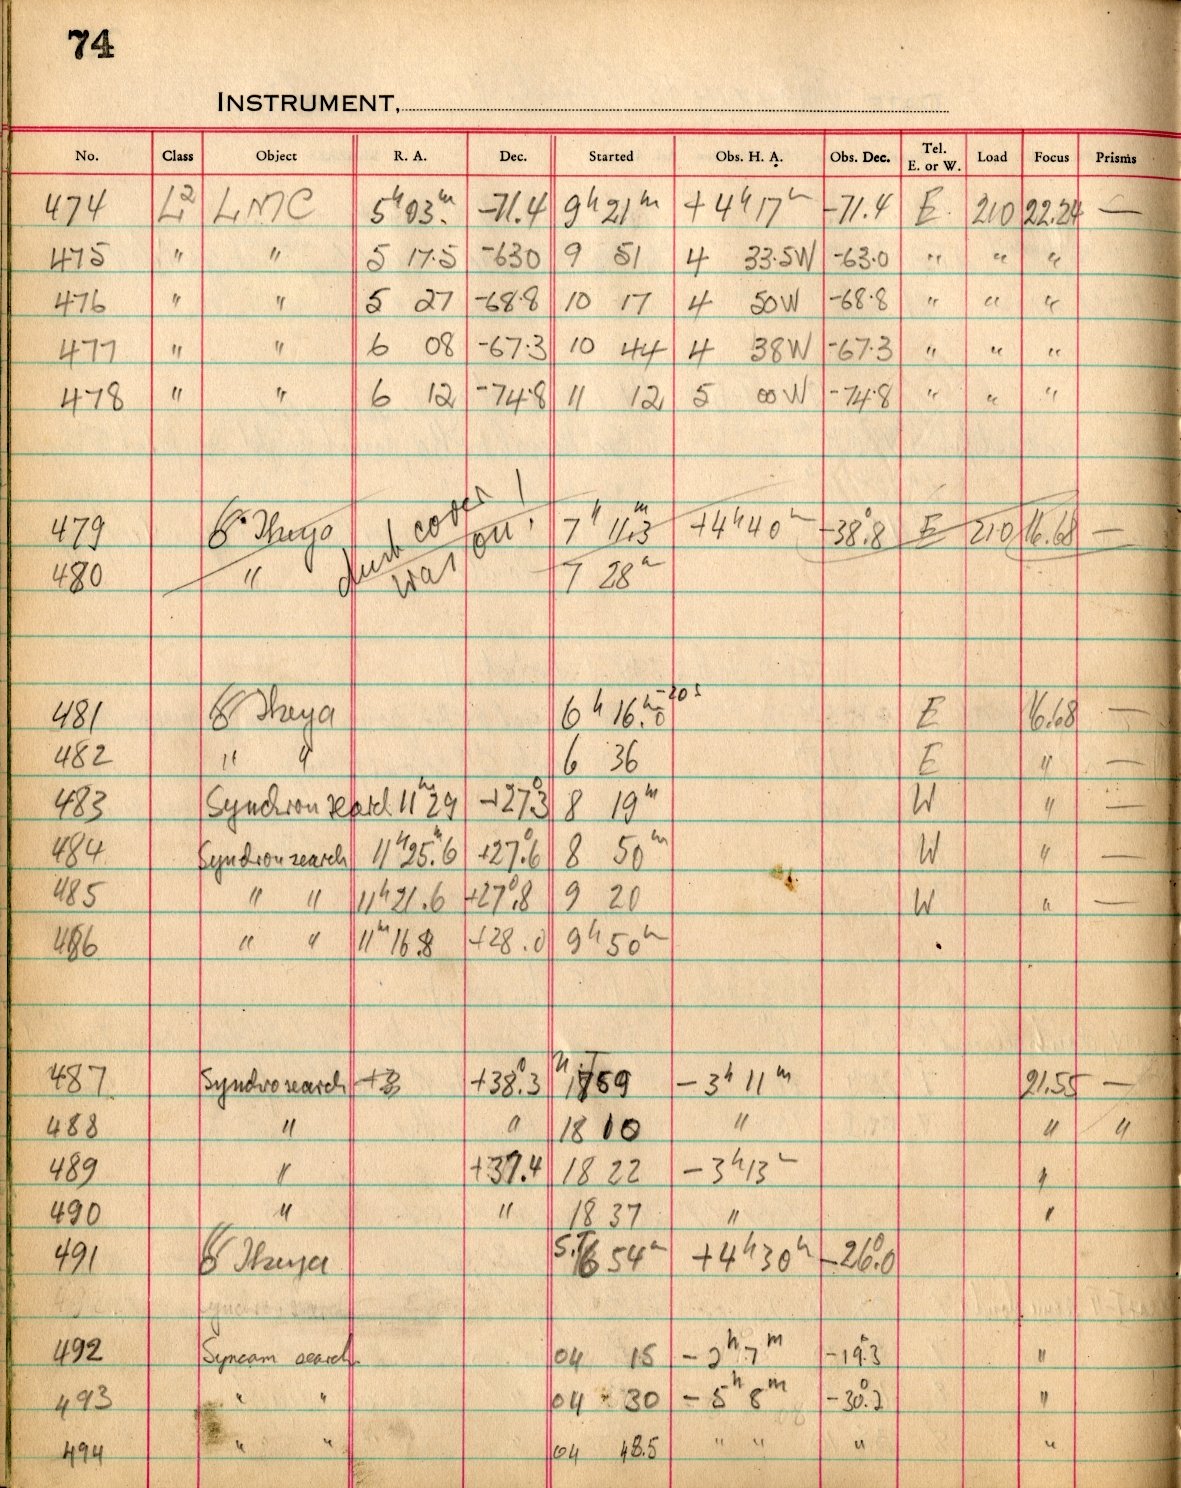 74
INSTRUMENT,
No. Class Object R. A. Dec. Started Obs. H. A. Obs. Dec. Tel. E. or W. Load Focus Prisms
474 L² LMC 5ʰ 03ᵐ. -71.4 9ʰ 21ᵐ +4ʰ 17ᵐ -71.4 E 210 22.24 —
475 " " 5 17.5 -630 9 51 4 33.5W -63.0 " " "
476 " " 5 27 -68.8 10 17 4 50W -68.8 " " "
477 " " 6 08 -67.3 10 44 4 38W -67.3 " " "
478 " " 6 12 -74.8 11 12 5 00W -74.8 " " "
dust cover
was on!
479 Ikeya 7ʰ 11.3ᵐ +4ʰ40ᵐ -38°.8 E 210 16.68 —
480 " 7 28ᵐ
481 Ikeya 6ʰ 16ᵐ.0 -20ˢ E 16.68 —
482 " " 6 36 E " —
483 Synchron search 11ʰ29 +27°3 8 19ᵐ W " —
484 Synchron search 11ʰ25ᵐ.6 +27°.6 8 50ᵐ W " —
485 " " 11ʰ21.6 +27°.8 9 20 W " —
486 " " 11ᵐ16.8 +28.0 9ʰ50ᵐ
487 Synchro search +3 +38°.3 1759 -3ʰ 11ᵐ 21.55 —
488 " " 18 10 " " "
489 " +37.4 18 22 -3ʰ13ᵐ "
490 " " 18 37 " "
491 Ikeya S.T. 6 54ᵐ +4ʰ30ᵐ -26°.0
492 Syncom search 04 15 -2ʰ 7ᵐ -19°.3 "
493 " " 04 30 -5ʰ 8ᵐ -30°.2 "
494 " " 04 48.5 " " " "